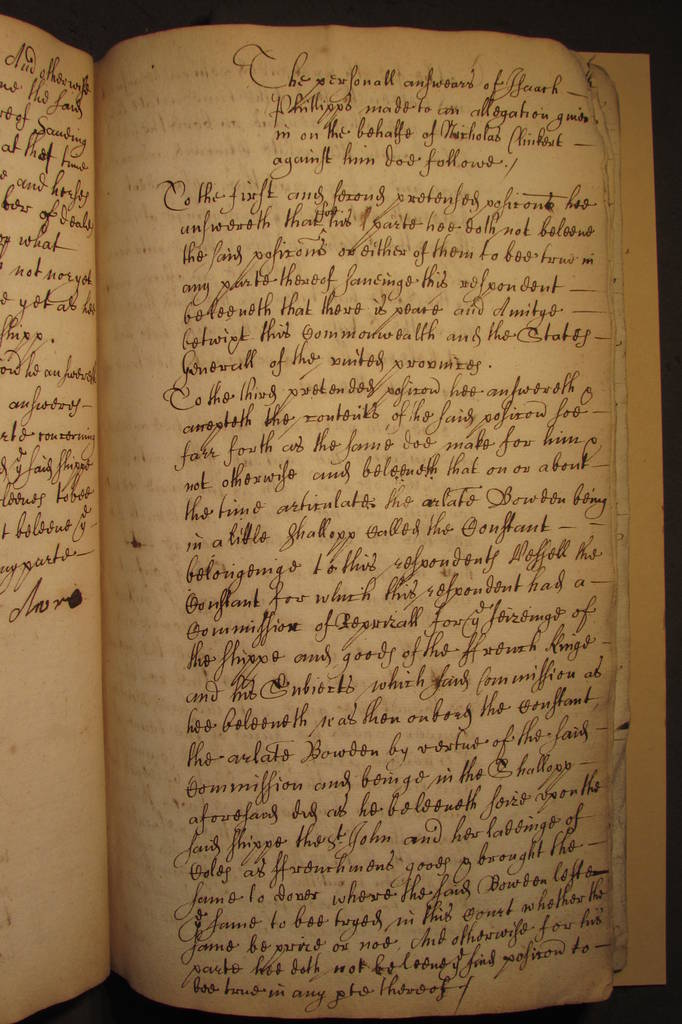 And otherwise
me the said
at that time
and horses
ber of deale
what
not nor yet
e yet as hee
shipp.
he answereth
answeres
rte concerning
ye said shippe
leeves to bee
t beleeve ye
ny parte
The personall answears of Isaack
Phillipps made to an allegation given
in on the behalfe of Nicholas Clinkert
against him doe followe./
To the first and second pretended posicons hee
answereth that for his parte hee doth not beleeve
the said posicons or either of them to bee true in
any parte thereof saveinge this respondent
beleeveth that there is peace and Amitye
betwixt this Commonwealth and the States
Generall of the united provinces.
To the third pretended posicon hee answereth &
accepteth the contents of the said posicon soe
farr forth as the same doe make for him &
not otherwise and beleeveth that on or about
the time articulate the arlate Bowden being
in a little Shallopp Called the Constant
belongeinge to this respondents Vessell the
Constant for which this respondent had a
Commission of Reprizall for ye seizeinge of
the shippe and goods of the ffrench Kinge
and his Subiects which said Commission as
hee beleeveth was then onbord the Constant,
the arlate Bowden by vertue of the said
Commission and beinge in the Shallopp
aforesaid did as he beleeveth seize upon the
said shippe the St John and her ladeinge of
Coles as ffrenchmens goods & brought the
same to dover where the said Bowden lefte
ye same to bee tryed in this Court whether the
same be prize or noe, And otherwise for his
parte hee doth not beleeve ye said posicon to
bee true in any pte thereof /